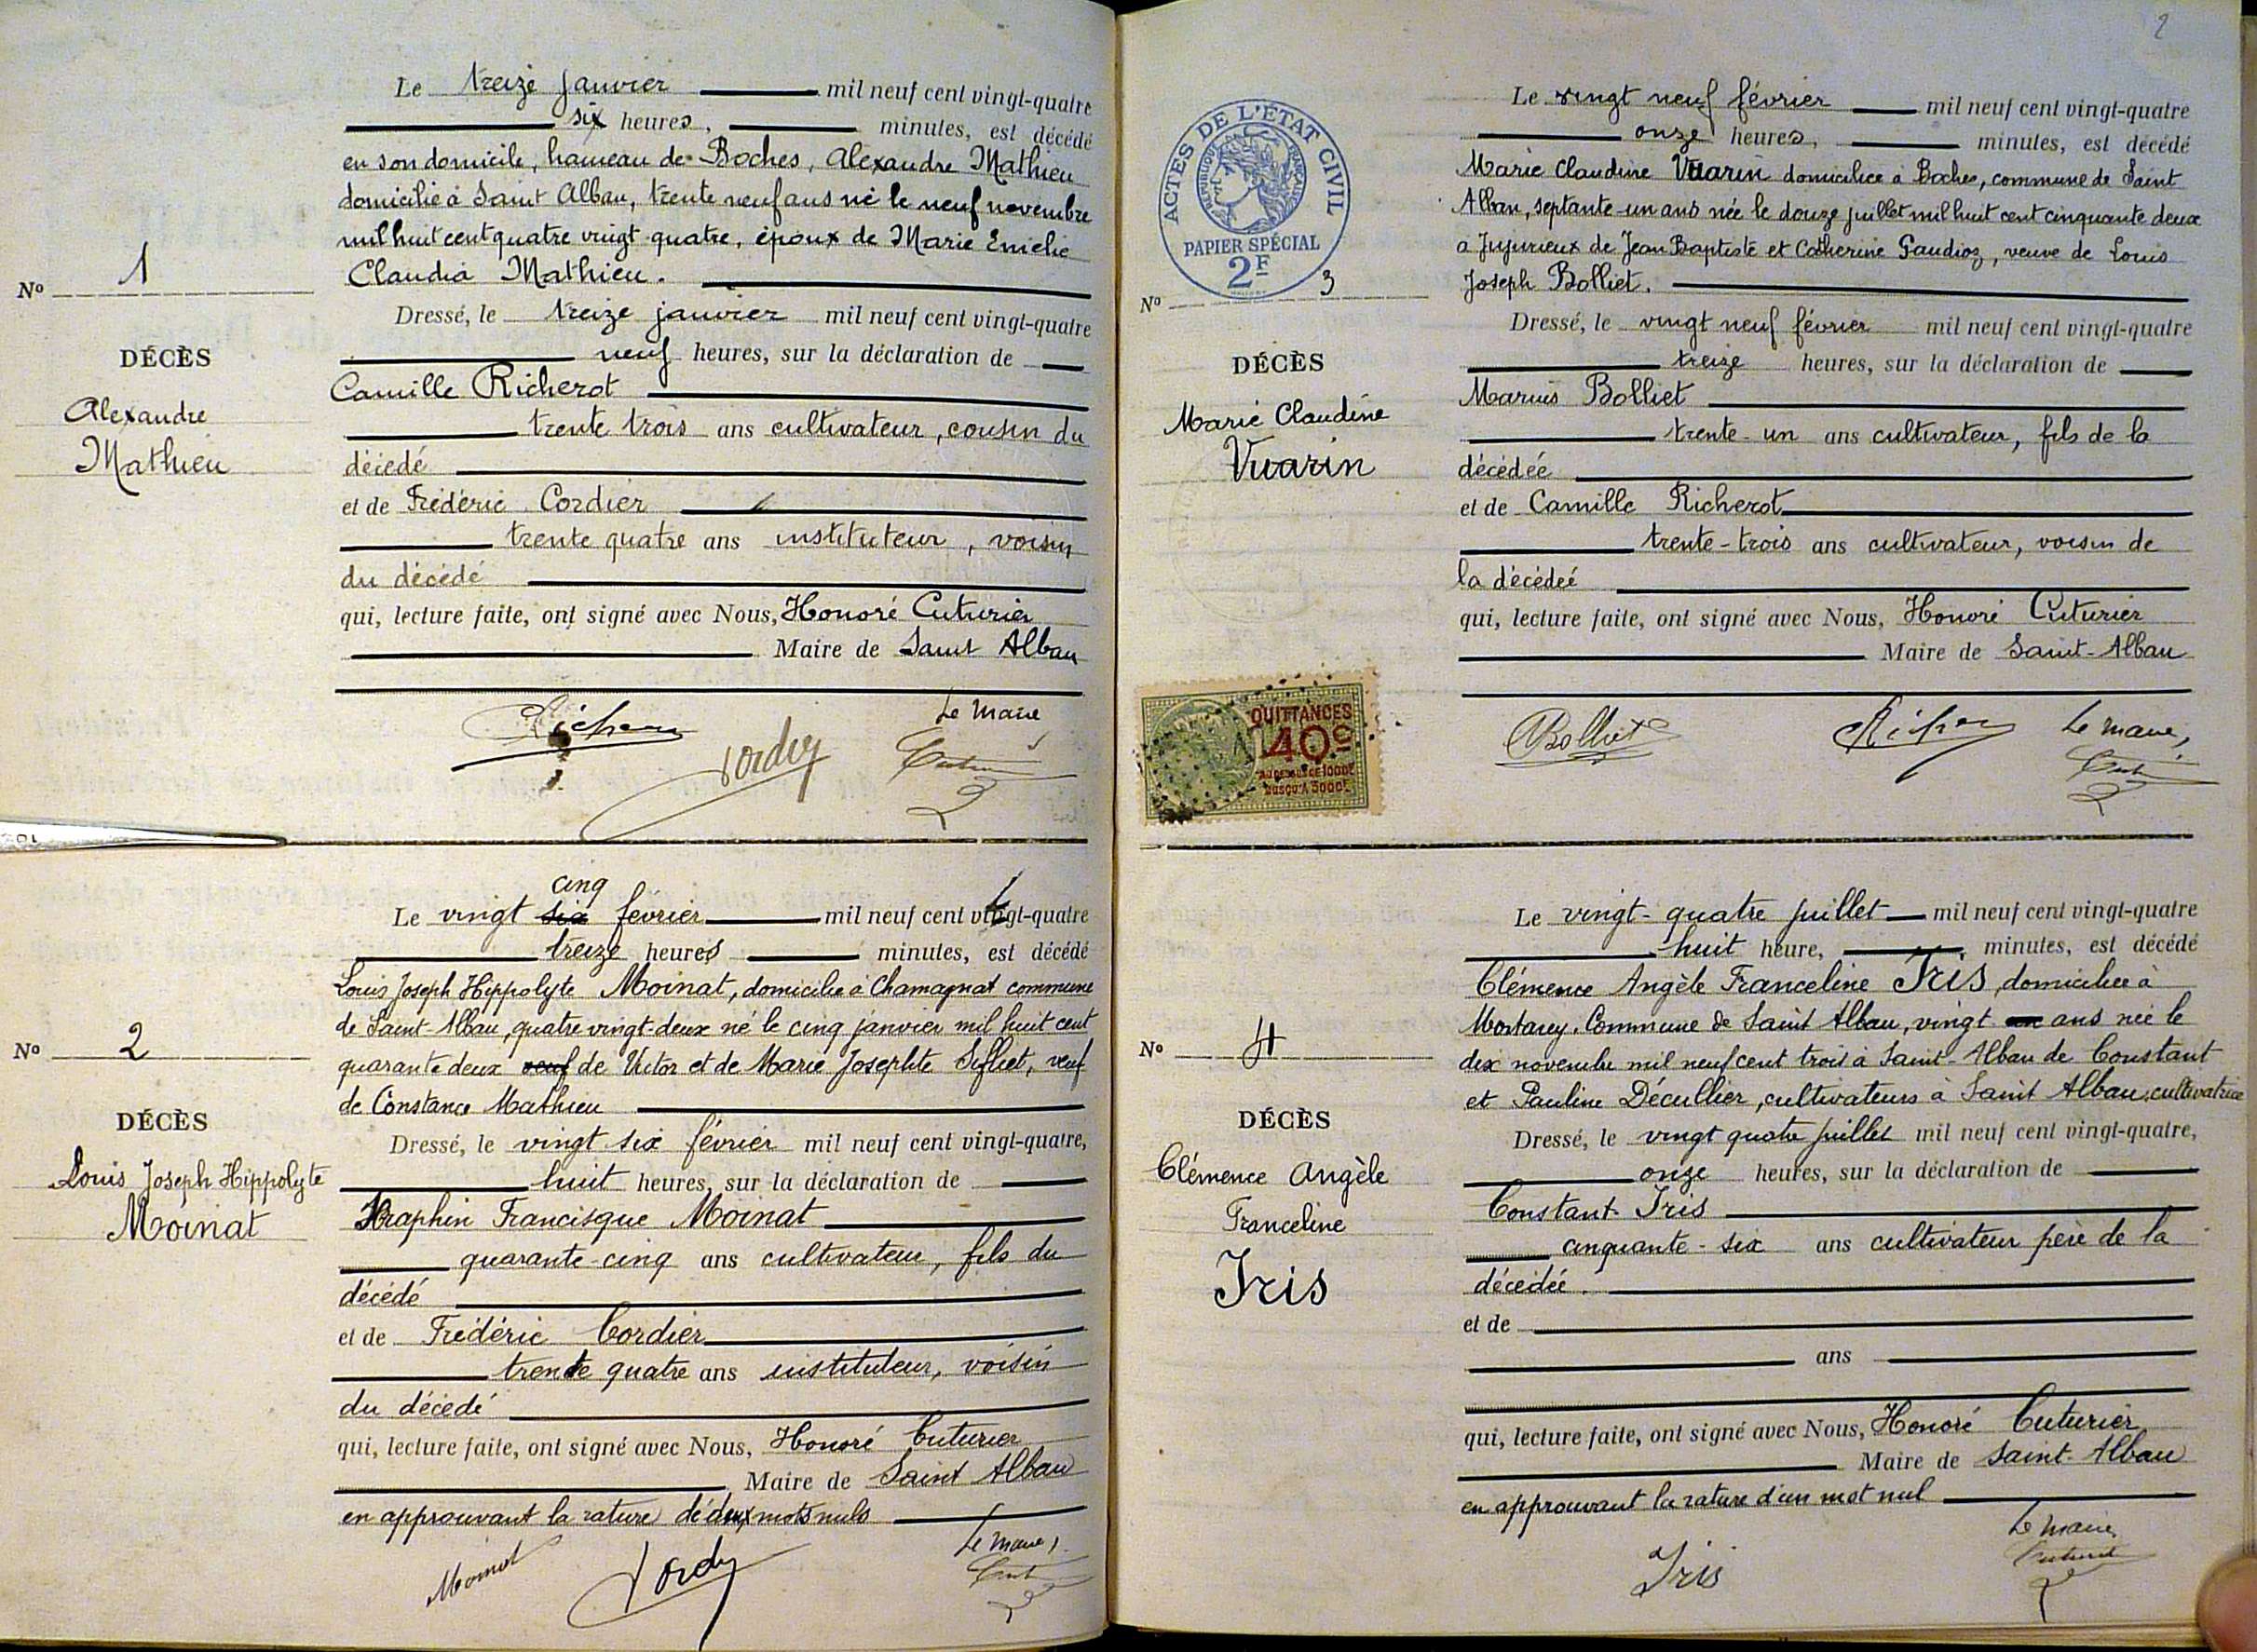 Le treize janvier mil neuf cent vingt-quatre
six heures, minutes, est décédé
en son domicile, hameau de Boches, Alexandre Mathieu
domicilié à Saint Alban, trente neuf ans né le neuf novembre
mil huit cent quatre vingt quatre, époux de Marie Emélie
Claudia Mathieu.
No 1
Dressé, le treize janvier mil neuf cent vingt-quatre
neuf heures, sur la déclaration de
DÉCÈS
Camille Richerot
Alexandre
trente trois ans cultivateur, cousin du
Mathieu
décédé
et de Frédéric Cordier
trente quatre ans instituteur, voisin
du décédé
qui, lecture faite, ont signé avec Nous, Honoré Cuturier
Maire de Saint Alban
Le Maire
cinq
Le vingt six février mil neuf cent vingt-quatre
treize heures minutes, est décédé
Louis Joseph Hippolyte Moinat, domicilié à Chamagnat commune
de Saint-Alban, quatre vingt-deux né le cinq janvier mil huit cent
No 2
quarante deux veuf de Victor et de Marie Josephte Siffliet, veuf
de Constance Mathieu
DÉCÈS
Dressé, le vingt six février mil neuf cent vingt-quatre,
Louis Joseph Hippolyte
huit heures, sur la déclaration de
Moinat
Séraphin Francisque Moinat
quarante-cinq ans cultivateur, fils du
décédé
et de Frédéric Cordier
trente quatre ans instituteur, voisin
du décédé
qui, lecture faite, ont signé avec Nous, Honoré Cuturier
Maire de Saint Alban
en approuvant la rature de deux mots nuls
Moinat
Le Maire,
2
Le vingt neuf février mil neuf cent vingt-quatre
onze heures, minutes, est décédé
ACTES DE L'ÉTAT CIVIL
RÉPUBLIQUE FRANÇAISE
PAPIER SPÉCIAL
2F
Marie Claudine Vuarin domiciliée à Boches, commune de Saint
Alban, septante-un ans née le douze juillet mil huit cent cinquante deux
à Jujurieux de Jean Baptiste et Catherine Gaudioz, veuve de Louis
Joseph Bolliet.
No 3
Dressé, le vingt neuf février mil neuf cent vingt-quatre
treize heures, sur la déclaration de
DÉCÈS
Marius Bolliet
Marie Claudine
trente-un ans cultivateur, fils de la
Vuarin
décédée
et de Camille Richerot
trente-trois ans cultivateur, voisin de
la décédée
qui, lecture faite, ont signé avec Nous, Honoré Cuturier
Maire de Saint-Alban
QUITTANCES
40c
AU DESSUS DE 1000F
JUSQU'A 3000F
Bolliet
Le Maire,
Le vingt-quatre juillet mil neuf cent vingt-quatre
huit heure, minutes, est décédé
Clémence Angèle Franceline Iris, domiciliée à
Mortarey, Commune de Saint Alban, vingt ans née le
No 4
dix novembre mil neuf cent trois à Saint-Alban de Constant
et Pauline Décullier, cultivateurs à Saint Alban, cultivatrice
DÉCÈS
Dressé, le vingt quatre juillet mil neuf cent vingt-quatre,
Clémence Angèle
onze heures, sur la déclaration de
Franceline
Constant Iris
Iris
cinquante-six ans cultivateur père de la
décédée.
et de
ans
qui, lecture faite, ont signé avec Nous, Honoré Cuturier
Maire de Saint-Alban
en approuvant la rature d'un mot nul
Iris
Le Maire,